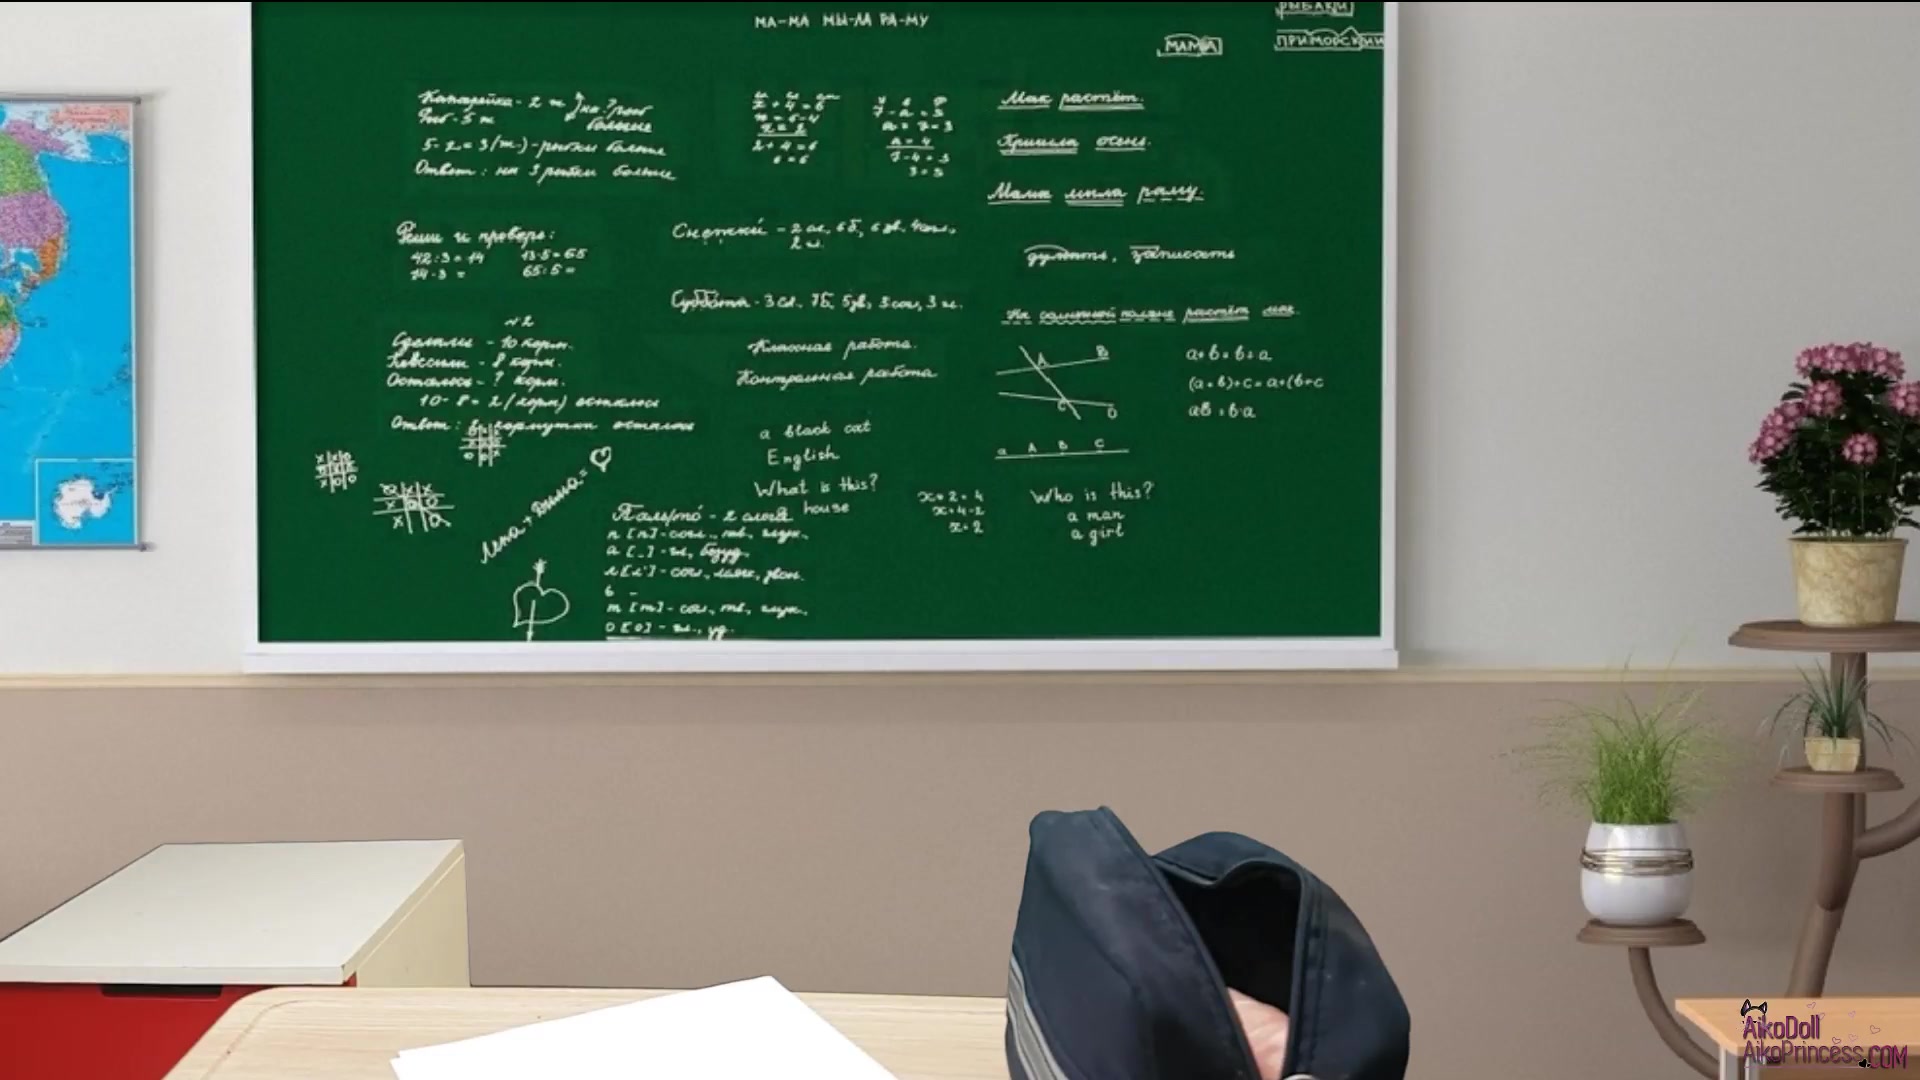 МА-МА МЫ-ЛА РА-МУ
РЫБАКИ
МАМА
ПРИМОРСКИЙ
Канарейка - 2 ж
Рыб - 5 ж
на ? рыб
больше
5 - 2 = 3 (ж.) - рыбки больше
Ответ: на 3 рыбки больше
x + 4 = 6
x = 6 - 4
x = 2
2 + 4 = 6
6 = 6
7 - a = 3
a = 7 - 3
a = 4
7 - 4 = 3
3 = 3
Мак растёт.
Пришла осень.
Мама мыла раму.
Реши и проверь:
42 : 3 = 14
14 · 3 =
13 · 5 = 65
65 : 5 =
Снежки -
2 ш.
думать, записать
Суббота - 3 сл. 7 б, 5 зв,
На солнечной поляне растёт мак.
№2
Сделали - 10 корм.
- 8 корм.
Осталось - ? корм.
10 - 8 = 2 (корм) осталось
Ответ: кормушки осталось
Классная работа.
Контрольная работа
A B
C D
a + b = b + a
(a + b) + c = a + (b + c
ab = b·a
a A B C
a black cat
English
What is this?
a house
x + 2 = 4
x = 4 - 2
x = 2
Who is this?
a man
a girl
Лена + Дима = ♡
Пальто́ - 2 слога
п [п] - согл., тв., глух.,
а [_] - гл., безуд.
л [л'] - согл., мягк., звон.
ь -
т [т] - согл., тв., глух.,
о [о] - гл., уд.
AikoDoll
AikoPrincess.COM